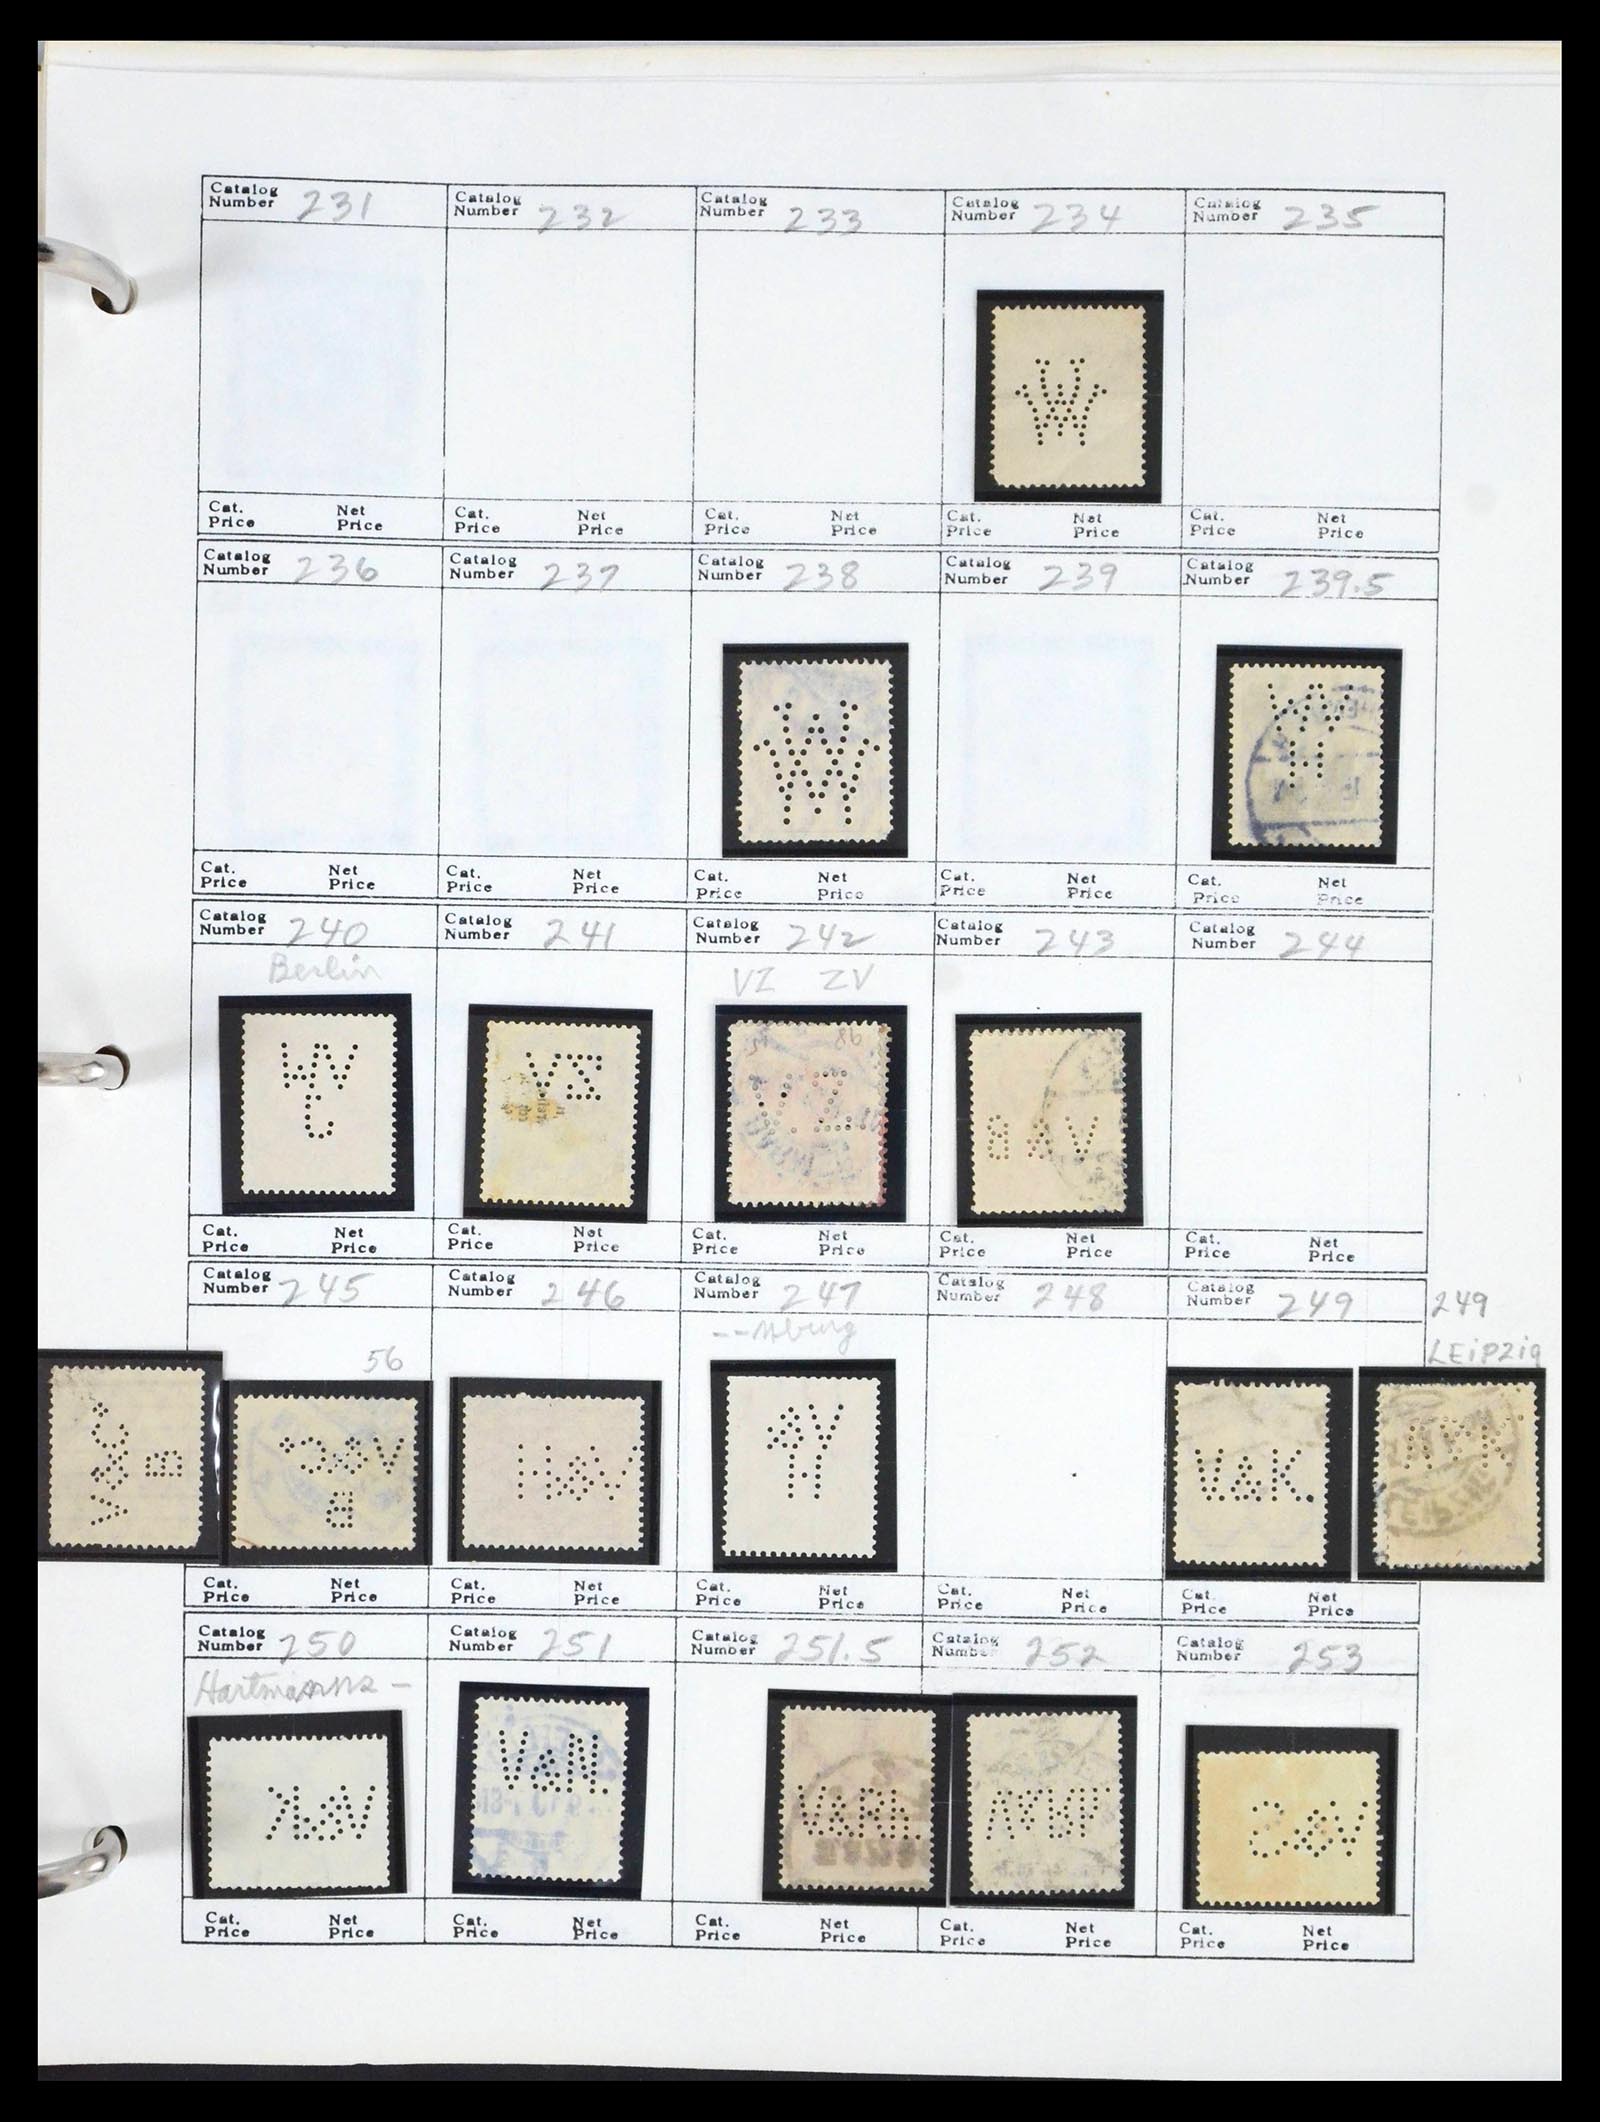 Catalog Number 231 Catalog Number 232 Catalog Number 233 Catalog Number 234 Catalog Number 235
Cat. Price Net Price Cat. Price Net Price Cat. Price Net Price Cat. Price Net Price Cat. Price Net Price
Catalog Number 236 Catalog Number 237 Catalog Number 238 Catalog Number 239 Catalog Number 239.5
Cat. Price Net Price Cat. Price Net Price Cat. Price Net Price Cat. Price Net Price Cat. Price Net Price
Catalog Number 240 Catalog Number 241 Catalog Number 242 Catalog Number 243 Catalog Number 244
Berlin VZ ZV
Cat. Price Net Price Cat. Price Net Price Cat. Price Net Price Cat. Price Net Price Cat. Price Net Price
Catalog Number 245 Catalog Number 246 Catalog Number 247 Catalog Number 248 Catalog Number 249 249
56 LEiPZig
V&K.
Cat. Price Net Price Cat. Price Net Price Cat. Price Net Price Cat. Price Net Price Cat. Price Net Price
Catalog Number 250 Catalog Number 251 Catalog Number 251.5 Catalog Number 252 Catalog Number 253
V&N V&Rh.
Cat. Price Net Price Cat. Price Net Price Cat. Price Net Price Cat. Price Net Price Cat. Price Net Price